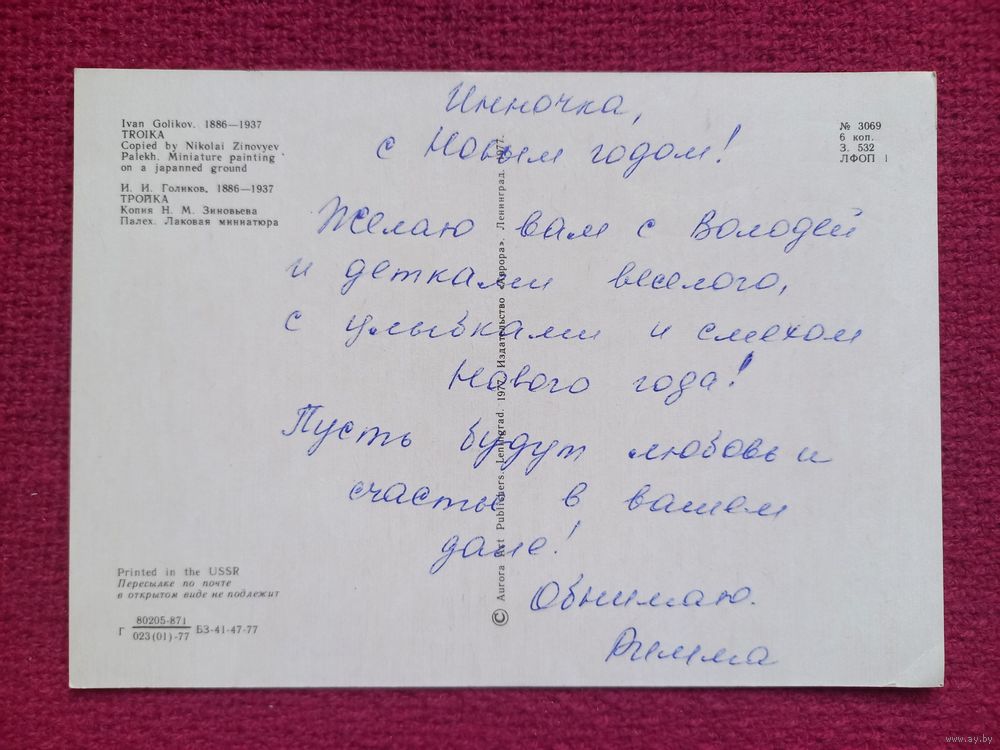 Ivan Golikov. 1886—1937
TROIKA
Copied by Nikolai Zinovyev
Palekh. Miniature painting
on a japanned ground
И. И. Голиков. 1886—1937
ТРОЙКА
Копия Н. М. Зиновьева
Палех. Лаковая миниатюра
№ 3069
6 коп.
З. 532
ЛФОП 1
Инночка,
с Новым годом!
Желаю вам с Володей
и детками веселого,
с улыбками и смехом
Нового года!
Пусть будут любовь и
счастье в вашем
доме!
Обнимаю.
Римма
© Aurora Art Publishers. Leningrad. 1977. Издательство «Аврора». Ленинград. 1977.
Printed in the USSR
Пересылке по почте
в открытом виде не подлежит
Г 80205-871
023(01)-77 БЗ-41-47-77
www.ay.by